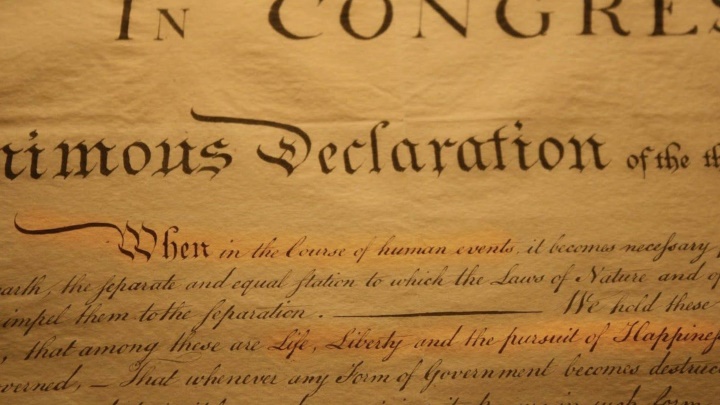 IN CONGRES
nimous Declaration of the th
When in the Course of human events, it becomes neceſsary
earth, the ſeparate and equal ſtation to which the Laws of Nature and of
impel them to the ſeparation. ——— We hold these
, that among these are Life, Liberty and the pursuit of Happineſs
verned, — That whenever any Form of Government becomes destruc